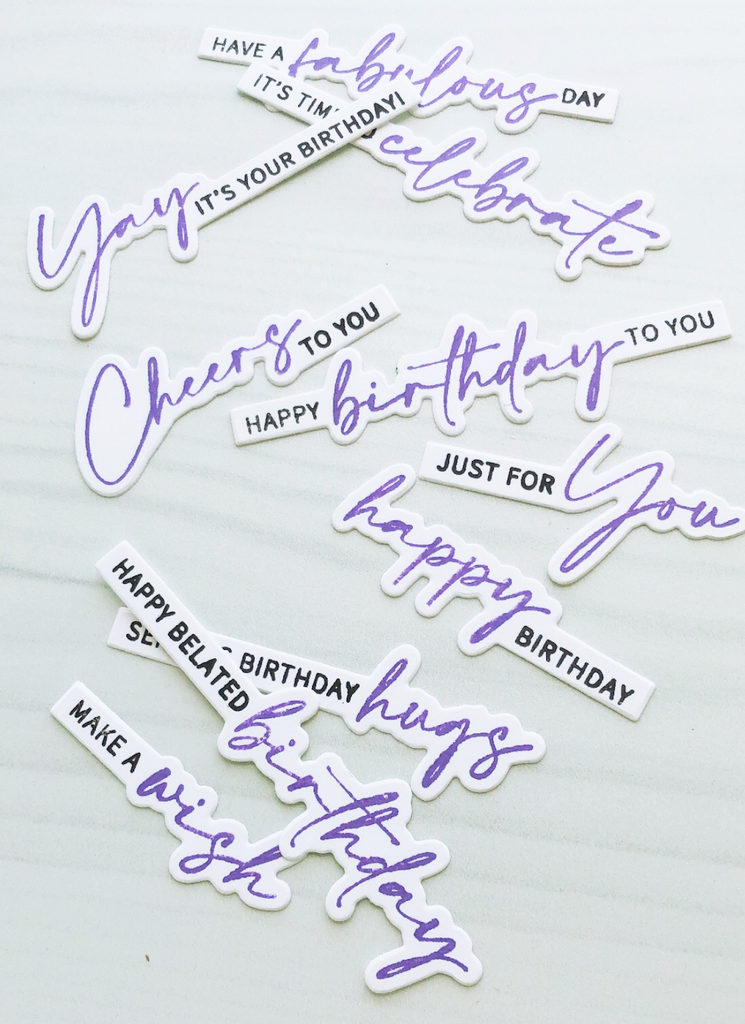 HAVE A fabulous DAY
IT'S TIME celebrate
Yay IT'S YOUR BIRTHDAY!
Cheers TO YOU
HAPPY birthday TO YOU
JUST FOR You
happy BIRTHDAY
HAPPY BELATED birthday
BIRTHDAY hugs
MAKE A wish